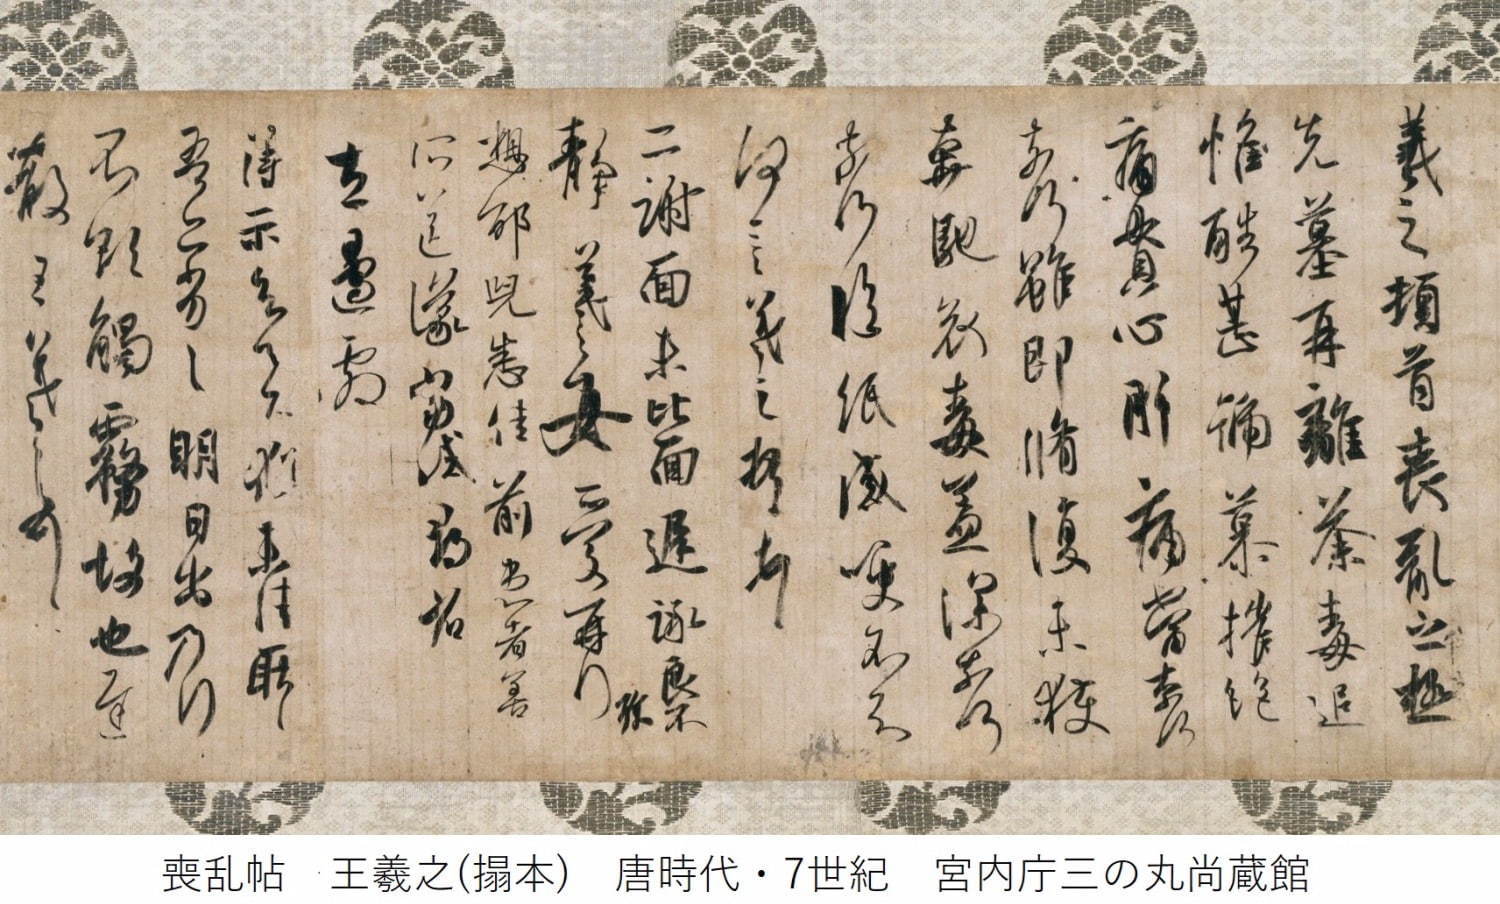 羲之頓首喪亂之極
先墓再離荼毒追
惟酷甚號慕摧絶
痛貫心肝痛當奈何
奈何雖即脩復未獲
奔馳哀毒益深奈何
奈何臨紙感哽不知
何言羲之頓首頓首
二謝面未比面遲詠良不
静羲之女愛再拜
想邵兒悉佳前患者善
所送議當試尋省
左邊劇
得示知足下猶未佳耿耿
吾亦劣劣明日出乃行
不欲觸霧故也遲
散王羲之頓首
喪乱帖 王羲之(搨本) 唐時代・7世紀 宮内庁三の丸尚蔵館